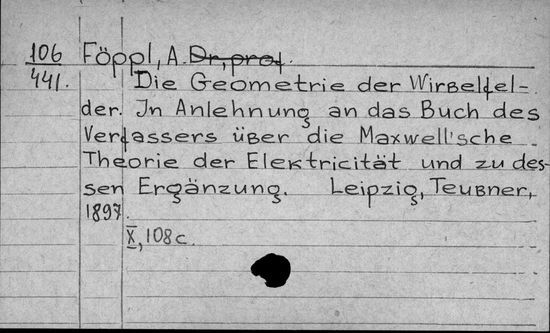 106 Föppl, A. Dr, prof.
441. Die Geometrie der Wirbelfel-
der. In Anlehnung an das Buch des
Verfassers über die Maxwell'sche
Theorie der Elektricität und zu des-
sen Ergänzung. Leipzig, Teubner,
1897.
X, 108 c.